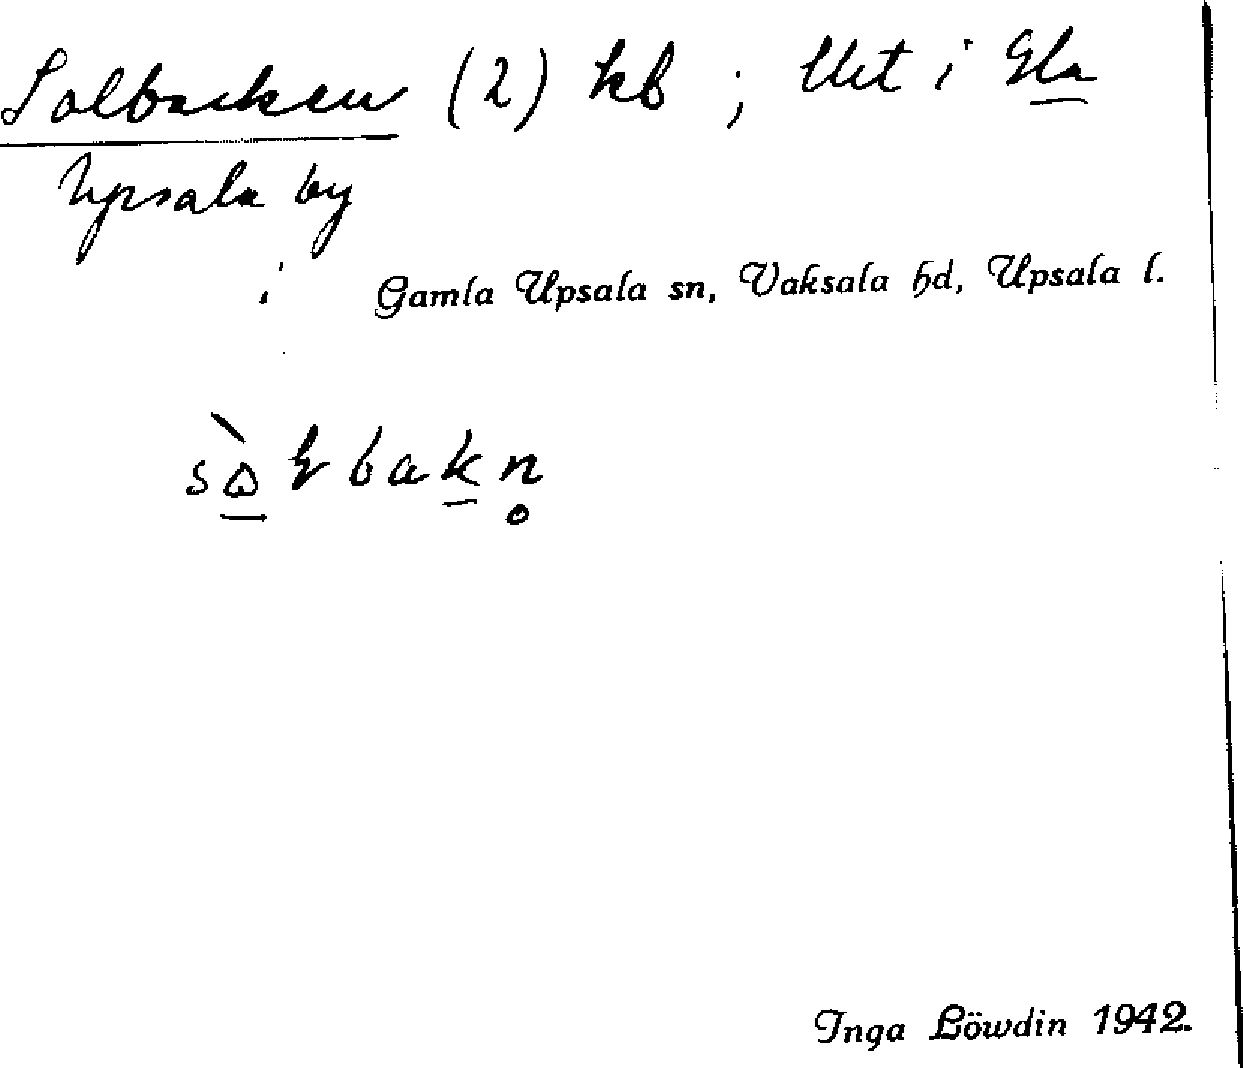 Solbacken (2) kb ; litet i Gla
Upsala by
i Gamla Upsala sn, Vaksala hd, Upsala l.
Inga Löwdin 1942.